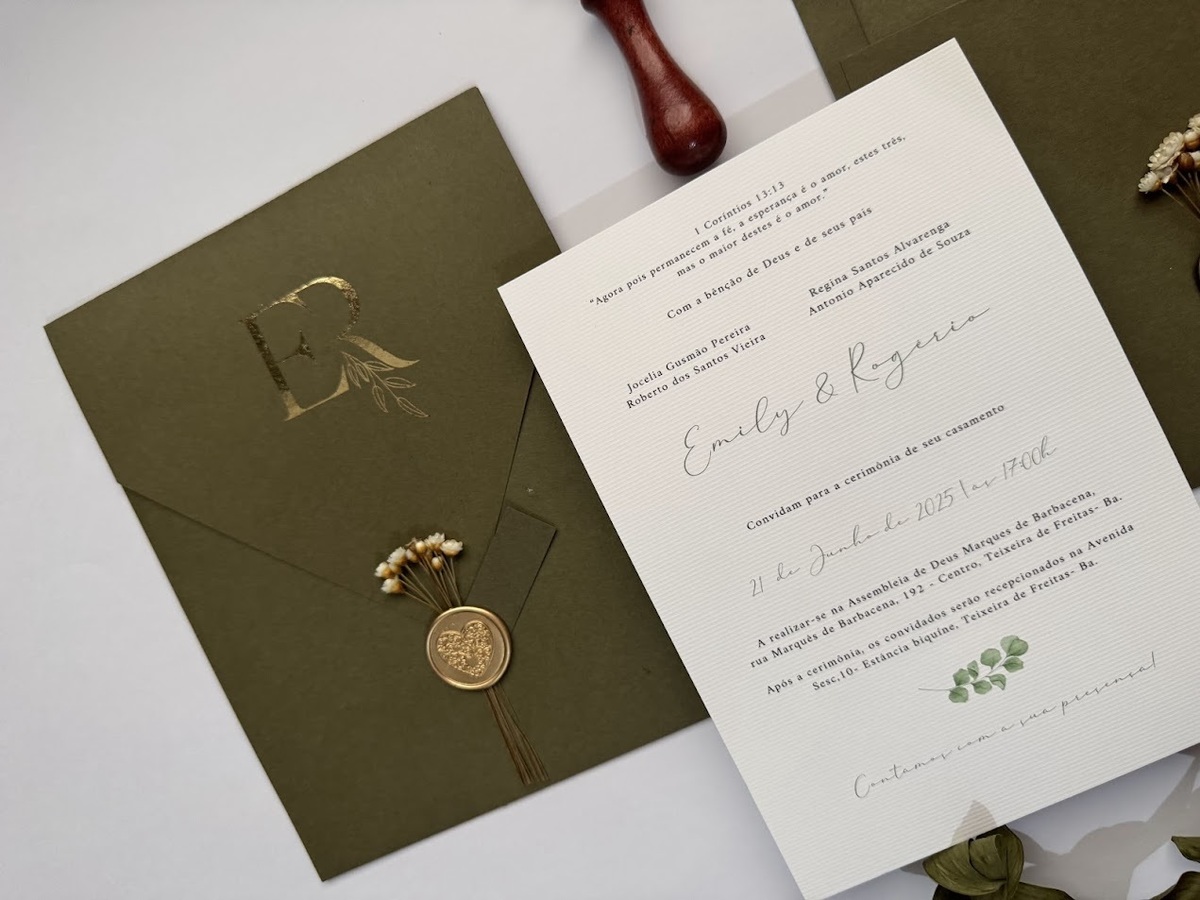 ER
1 Coríntios 13:13
"Agora pois permanecem a fé, a esperança é o amor, estes três,
mas o maior destes é o amor."
Com a bênção de Deus e de seus pais
Jocelia Gusmão Pereira
Roberto dos Santos Vieira
Regina Santos Alvarenga
Antonio Aparecido de Souza
Emily & Rogério
Convidam para a cerimônia de seu casamento
21 de Junho de 2025 | as 17:00h
A realizar-se na Assembleia de Deus Marques de Barbacena,
rua Marquês de Barbacena, 192 - Centro, Teixeira de Freitas- Ba.
Após a cerimônia, os convidados serão recepcionados na Avenida
Sesc,10- Estância biquíne. Teixeira de Freitas- Ba.
Contamos com a sua presensa!